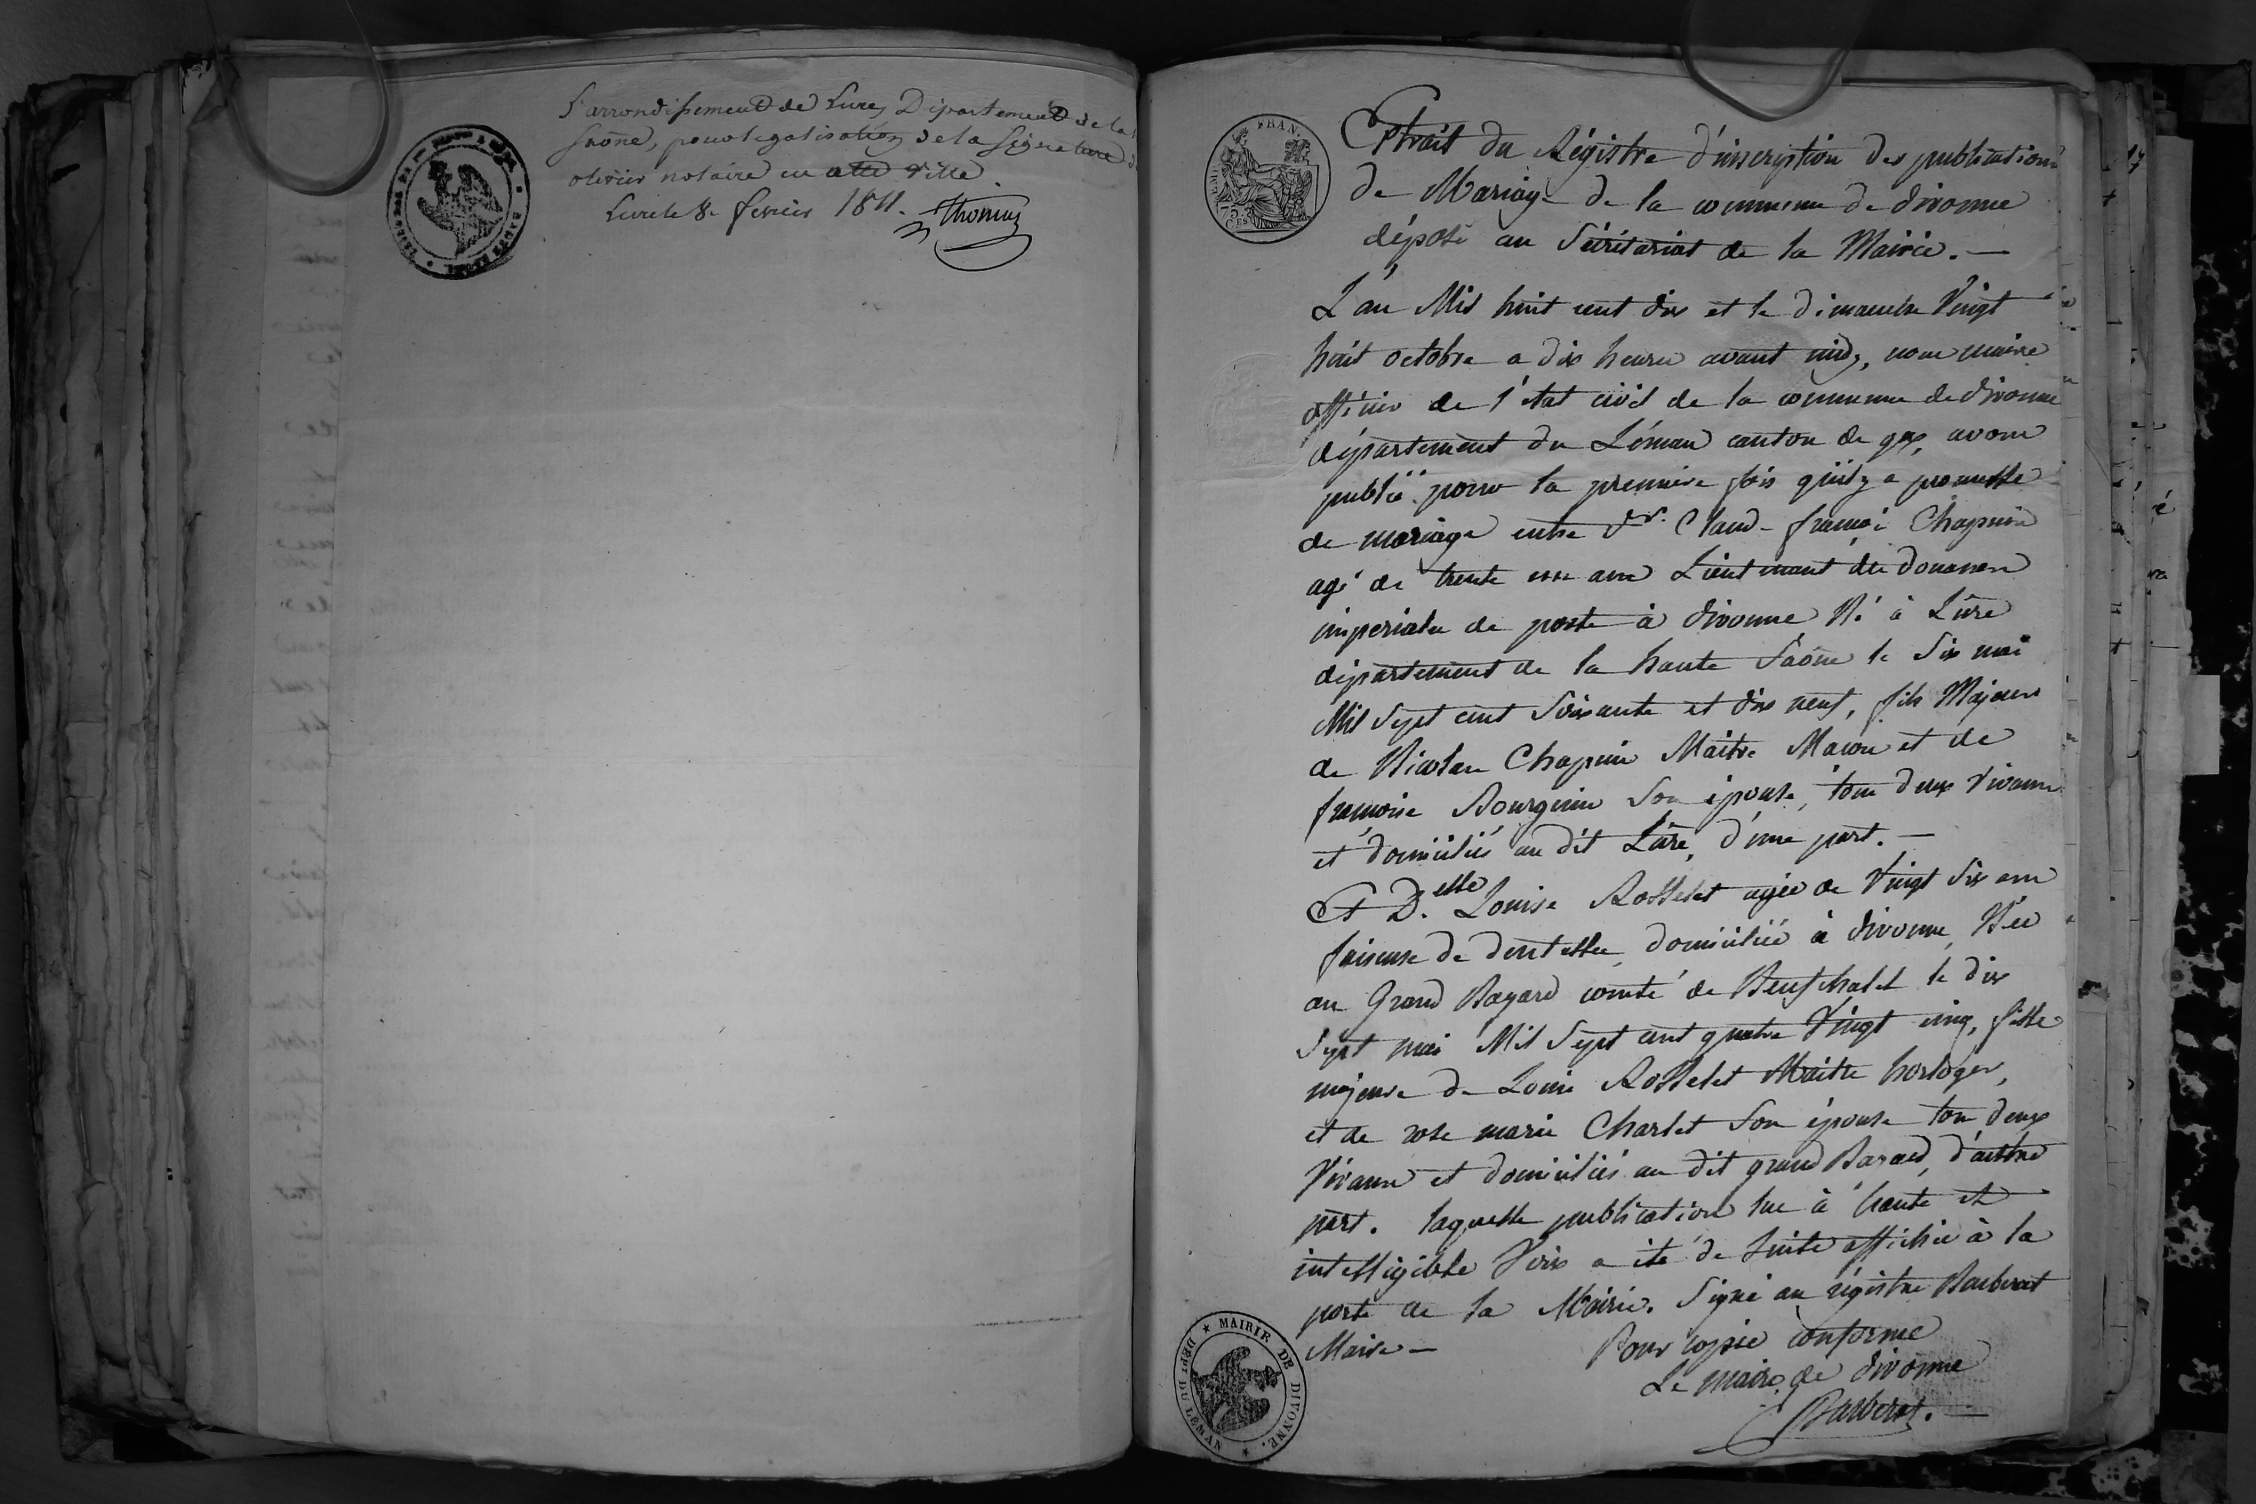 l'arrondissement de Lure, Département de la
Saône, pour légalisation de la signature
olivier notaire en cette ville.
Lure le 8. fevrier 1811.
Thomas
Extrait du Régistre d'inscription des publications
de Mariage de la commune de divonne
déposé au Sécrétariat de la Mairie. —
L'an Mil huit cent dix et le dimanche Vingt
huit octobre a dix heures avant midy, nous maire
officier de l'état civil de la commune de divonne
département du Léman canton de gex, avons
publié pour la premiere fois qu'il y a promesse
de mariage entre Sr. Claud-françoi Chapuis
agé de trente un ans Lieutenant des douanes
imperiales de poste à divonne Né à Lûre
département de la haute Saône le Six mai
Mil Sept cent Soixante et dix neuf, fils Majeur
de Nicolas Chapuis Maître Macon et de
francoise Bourguin Son épouse, tous deux Vivans
et domiciliés au dit Lûre, d'une part. —
Et D.elle Louise Rosselet agée de Vingt Six ans
faiseuse de dentelles, domiciliée à divonne, Née
au Grand Bayard comté de Neufchatel le dix
Sept mai Mil Sept cent quatre Vingt cinq, fille
majeure de Louis Rosselet Maitre horloger,
et de rose marie Charlet Son épouse tous deux
Vivans et domiciliés au dit grand Bayard, d'autre
part. laquelle publication lue à haute et
intelligible Voix a été de Suite affichée à la
porte de la Mairie. Signé au régistre Barberat
Maire — Pour copie conforme
Le maire de divonne
Barberat. —
MAIRIE DE DIVONNE.
DEPT DU LÉMAN
FRAN.
75
CES